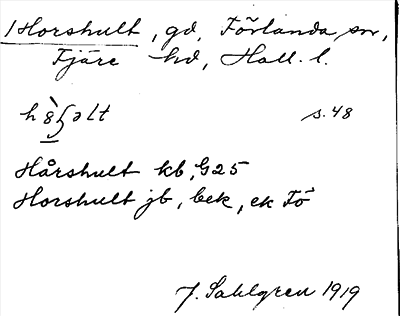 1 Horshult, gd, Förlanda sn,
Fjäre hd, Hall. l.
s. 48
Hårshult kb, G25
Horshult jb, bek, ek Fö
J. Sahlgren 1919